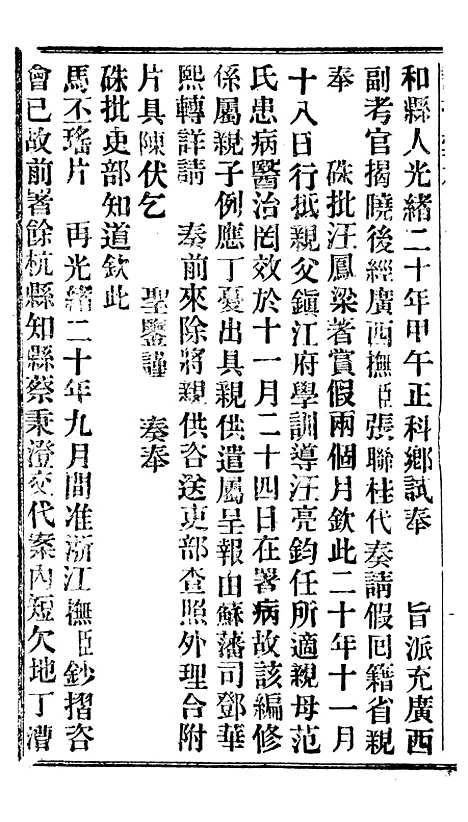 和縣人光緒二十年甲午正科鄉試奉　旨派充廣西
副考官揭曉後經廣西撫臣張聯桂代奏請假囘籍省親
奉　硃批汪鳳梁著賞假兩個月欽此二十年十一月
十八日行抵親父鎭江府學訓導汪亮鈞任所適親母范
氏患病醫治罔效於十一月二十四日在署病故該編修
係屬親子例應丁憂出具親供遣屬呈報由蘇藩司鄧華
熙轉詳請　奏前來除將親供咨送吏部查照外理合附
片具陳伏乞　聖鑒謹　奏奉
硃批吏部知道欽此
馬丕瑤片　再光緒二十年九月間准浙江撫臣鈔摺咨
會已故前署餘杭縣知縣蔡秉澄交代案內短欠地丁漕